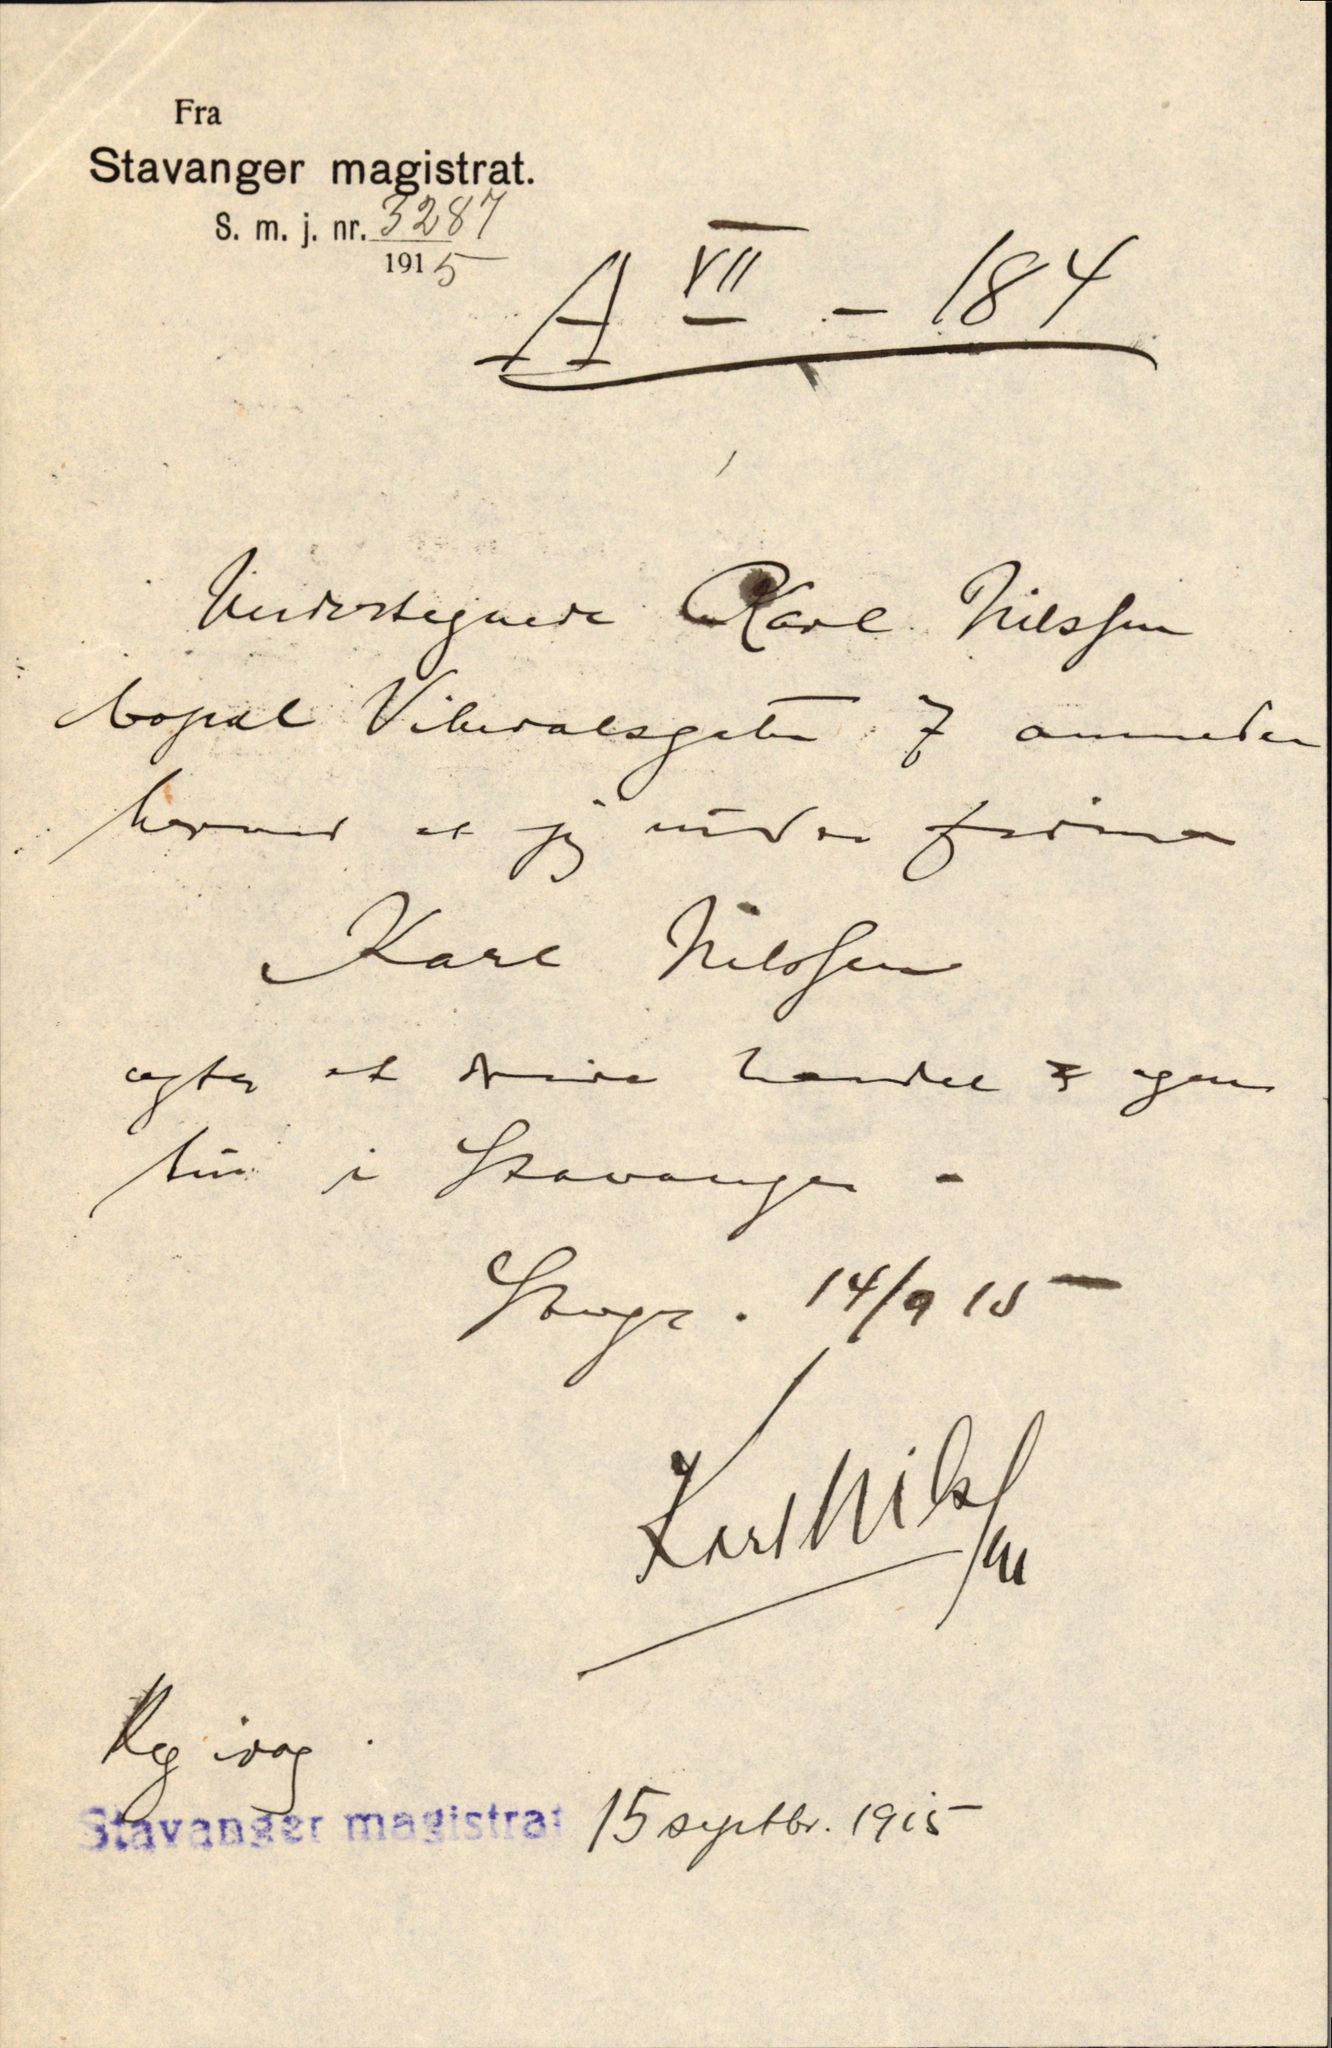 Fra
Stavanger magistrat.
S. m. j. nr. 3287
1915
A VII - 184
Undertegnede Karl Nilssen
bopæl Vibendalsgaten 7 anmelder
herved at jeg under firma
Karl Nilssen
agter at drive handel & agen
tur i Stavanger -
Stvgr. 14/9 15
Karl Nilssen
Reg idag.
Stavanger magistrat 15 septbr. 1915